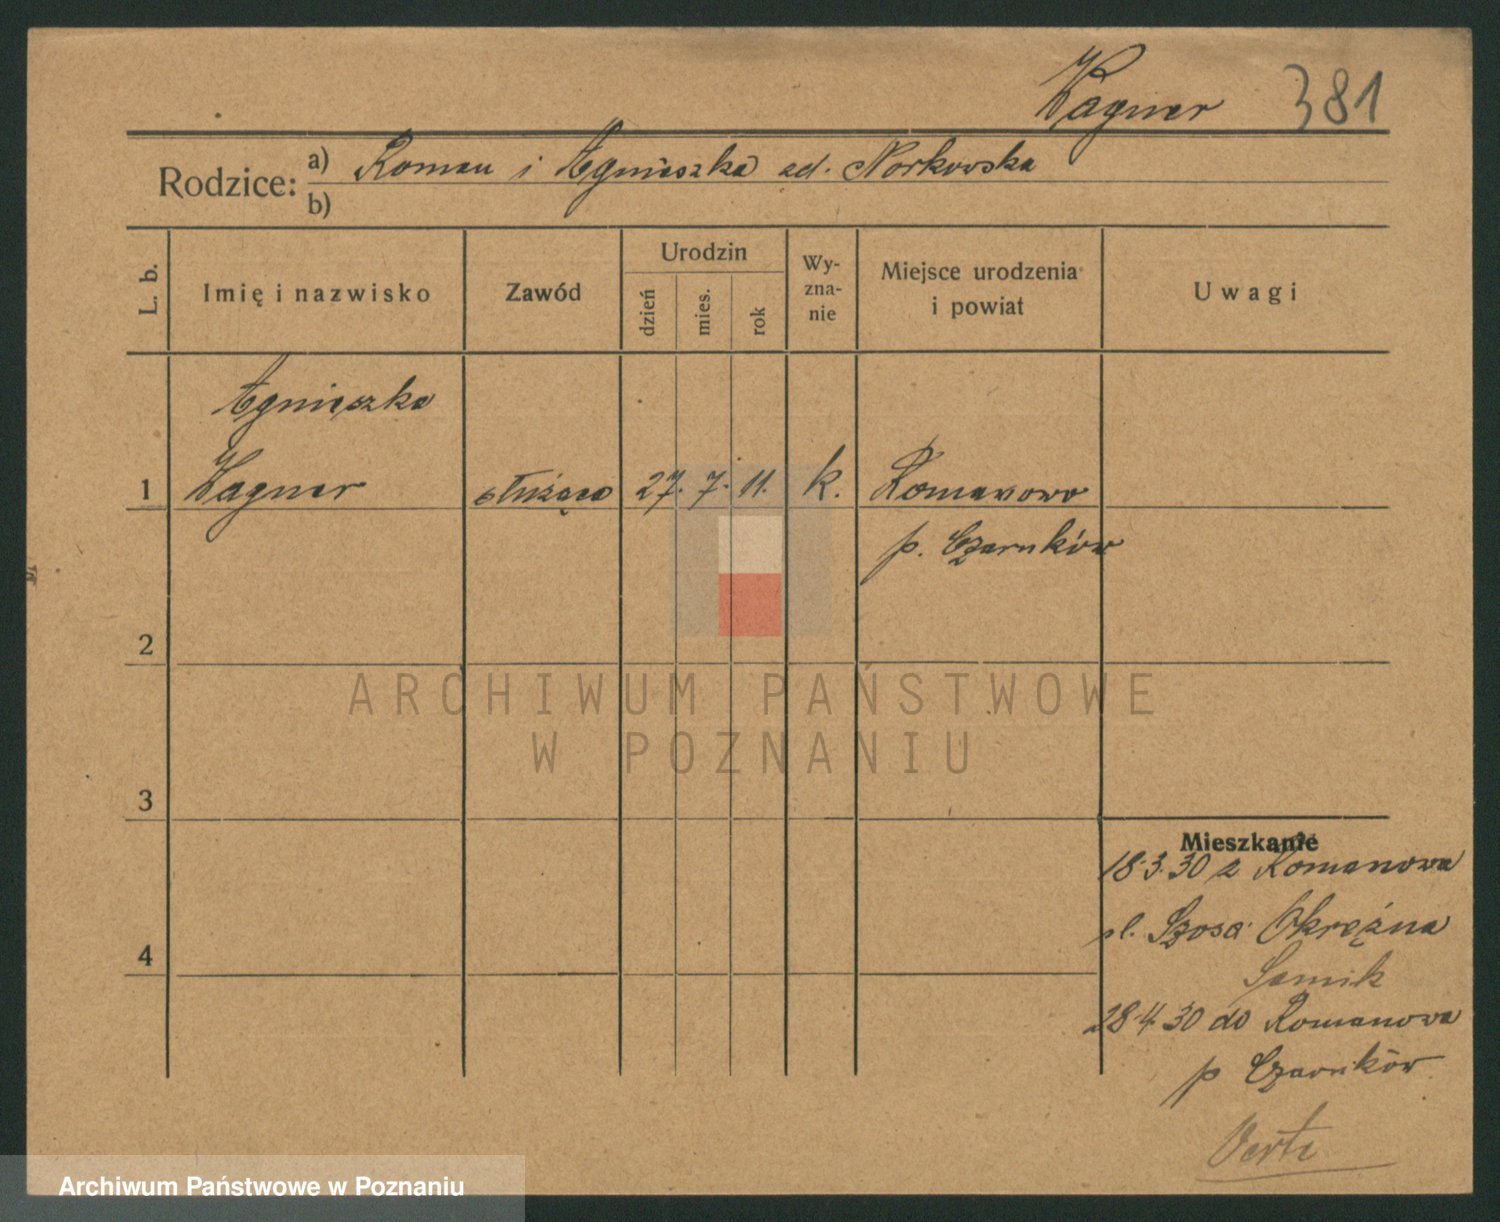 Wagner 381
Rodzice: a) Roman i Agnieszka zd. Norkowska
b)
L. b.
Imię i nazwisko
Zawód
Urodzin
dzień
mies.
rok
Wy-
zna-
nie
Miejsce urodzenia
i powiat
Uwagi
Agnieszka
1 Wagner służąca 27. 7. 11. k. Romanowo
p. Czarnków
2
3
4
Mieszkanie
18.3.30 z Romanowa
ul. Szosa Okrężna
28.4.30 do Romanowa
p Czarnków
Verte
ARCHIWUM PAŃSTWOWE
W POZNANIU
Archiwum Państwowe w Poznaniu